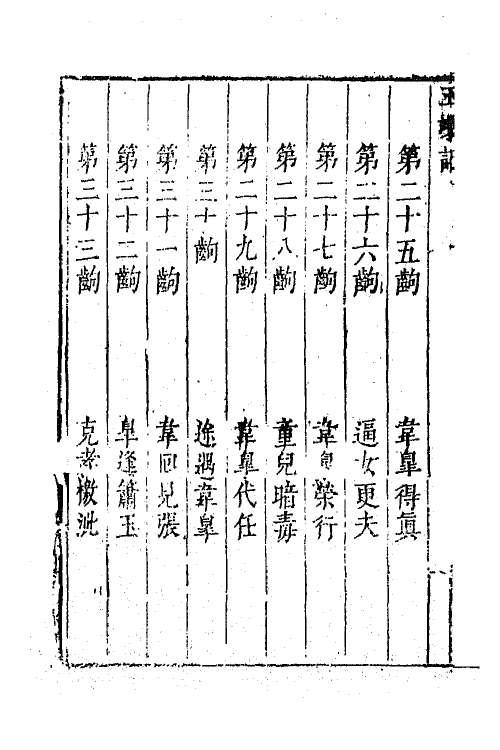 玉環記
第二十五齣 韋皐得眞
第二十六齣 逼女更夫
第二十七齣 韋皐榮行
第二十八齣 童兒暗毒
第二十九齣 韋皐代任
第三十齣 途遇韋皐
第三十一齣 韋回見張
第三十二齣 皐逢簫玉
第三十三齣 克孝檄泚